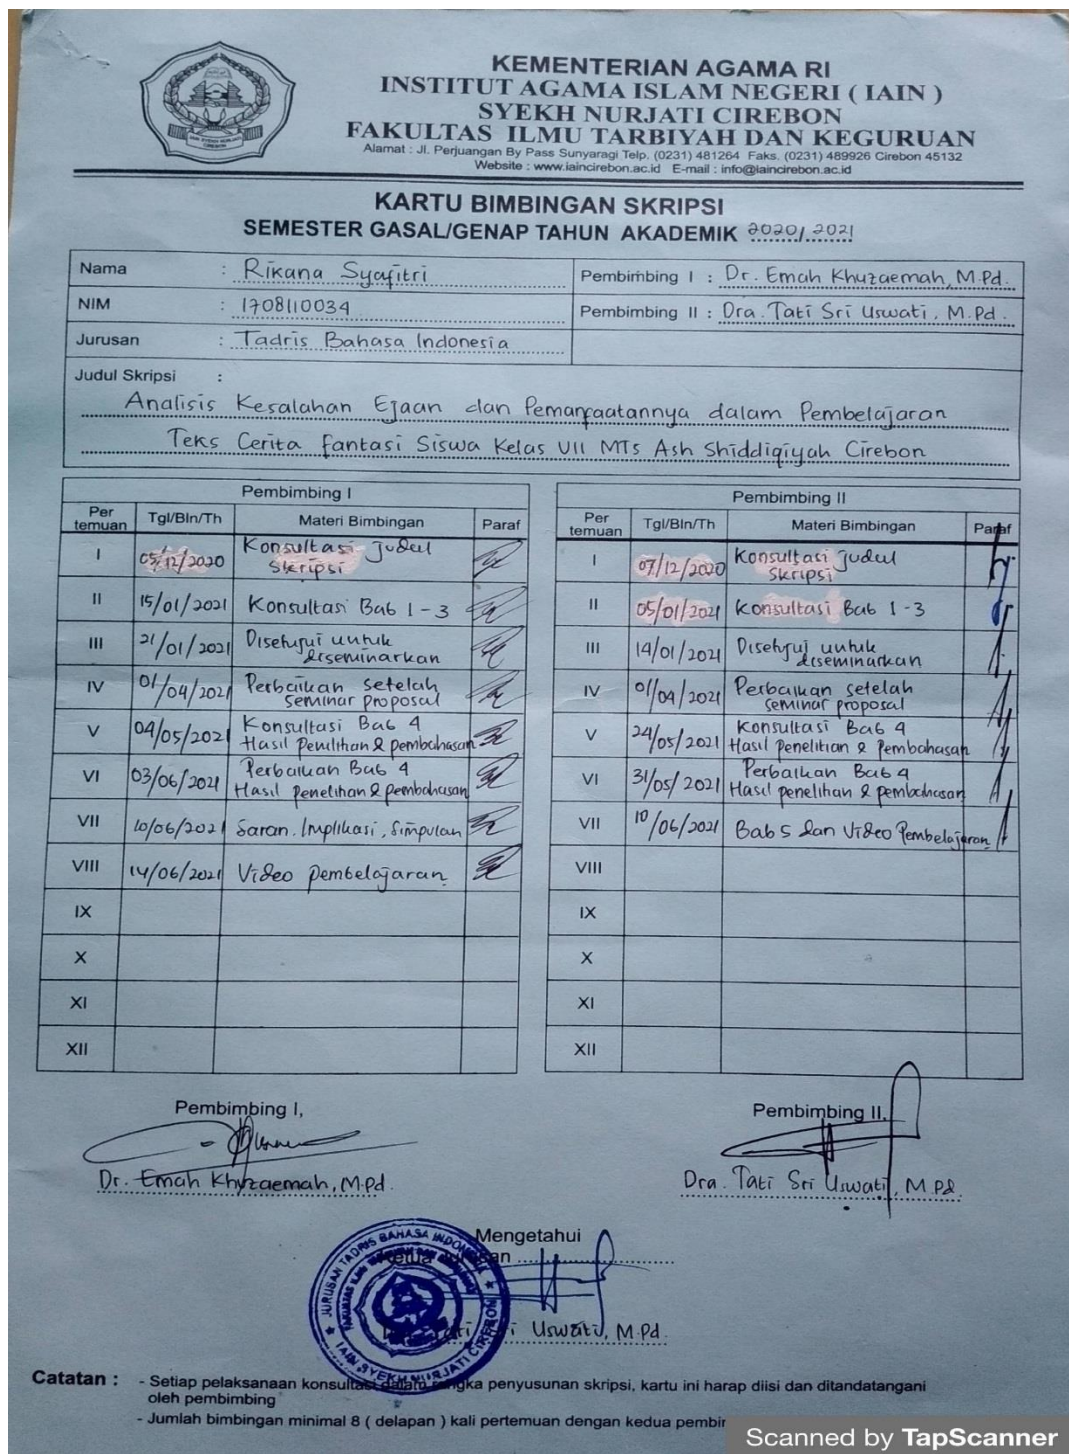 KEMENTERIAN AGAMA RI
INSTITUT AGAMA ISLAM NEGERI ( IAIN )
SYEKH NURJATI CIREBON
FAKULTAS ILMU TARBIYAH DAN KEGURUAN
Alamat : Jl. Perjuangan By Pass Sunyaragi Telp. (0231) 481264 Faks. (0231) 489926 Cirebon 45132
Website : www.iaincirebon.ac.id E-mail : info@iaincirebon.ac.id
IAIN SYEKH NURJATI
CIREBON
KARTU BIMBINGAN SKRIPSI
SEMESTER GASAL/GENAP TAHUN AKADEMIK 2020/2021
Nama : Rikana Syafitri
Pembimbing I : Dr. Emah Khuzaemah, M.Pd.
NIM : 1708110034
Pembimbing II : Dra. Tati Sri Uswati, M.Pd.
Jurusan : Tadris Bahasa Indonesia
Judul Skripsi :
Analisis Kesalahan Ejaan dan Pemanfaatannya dalam Pembelajaran
Teks Cerita Fantasi Siswa Kelas VII MTs Ash Shiddiqiyah Cirebon
Pembimbing I
Per temuan Tgl/Bln/Th Materi Bimbingan Paraf
I 05/12/2020 Konsultasi judul
Skripsi
II 15/01/2021 Konsultasi Bab 1 - 3
III 21/01/2021 Disetujui untuk
diseminarkan
IV 01/04/2021 Perbaikan setelah
seminar proposal
V 04/05/2021 Konsultasi Bab 4
Hasil penelitian & pembahasan
VI 03/06/2021 Perbaikan Bab 4
Hasil penelitian & pembahasan
VII 10/06/2021 Saran. Implikasi, Simpulan
VIII 14/06/2021 Video pembelajaran
IX
X
XI
XII
Pembimbing II
Per temuan Tgl/Bln/Th Materi Bimbingan Paraf
I 07/12/2020 Konsultasi judul
Skripsi
II 05/01/2021 Konsultasi Bab 1 - 3
III 14/01/2021 Disetujui untuk
diseminarkan
IV 01/04/2021 Perbaikan setelah
seminar proposal
V 24/05/2021 Konsultasi Bab 4
Hasil penelitian & pembahasan
VI 31/05/2021 Perbaikan Bab 4
Hasil penelitian & pembahasan
VII 10/06/2021 Bab 5 dan Video Pembelajaran
VIII
IX
X
XI
XII
Pembimbing I,
Dr. Emah Khuzaemah, M.Pd.
Pembimbing II,
Dra. Tati Sri Uswati, M.Pd.
Mengetahui
Ketua Jurusan
Tati Sri Uswati, M.Pd.
JURUSAN TADRIS BAHASA INDONESIA
IAIN SYEKH NURJATI CIREBON
Catatan : - Setiap pelaksanaan konsultasi dalam rangka penyusunan skripsi, kartu ini harap diisi dan ditandatangani
oleh pembimbing
- Jumlah bimbingan minimal 8 ( delapan ) kali pertemuan dengan kedua
Scanned by TapScanner